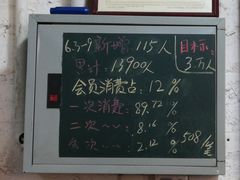 6.3-9新增 115人
目标:
3万人
累计: 13900人
会员消费占: 12%
一次消费: 89.72%
二次~~: 8.16%
三次~~: 2.12%
508/笔